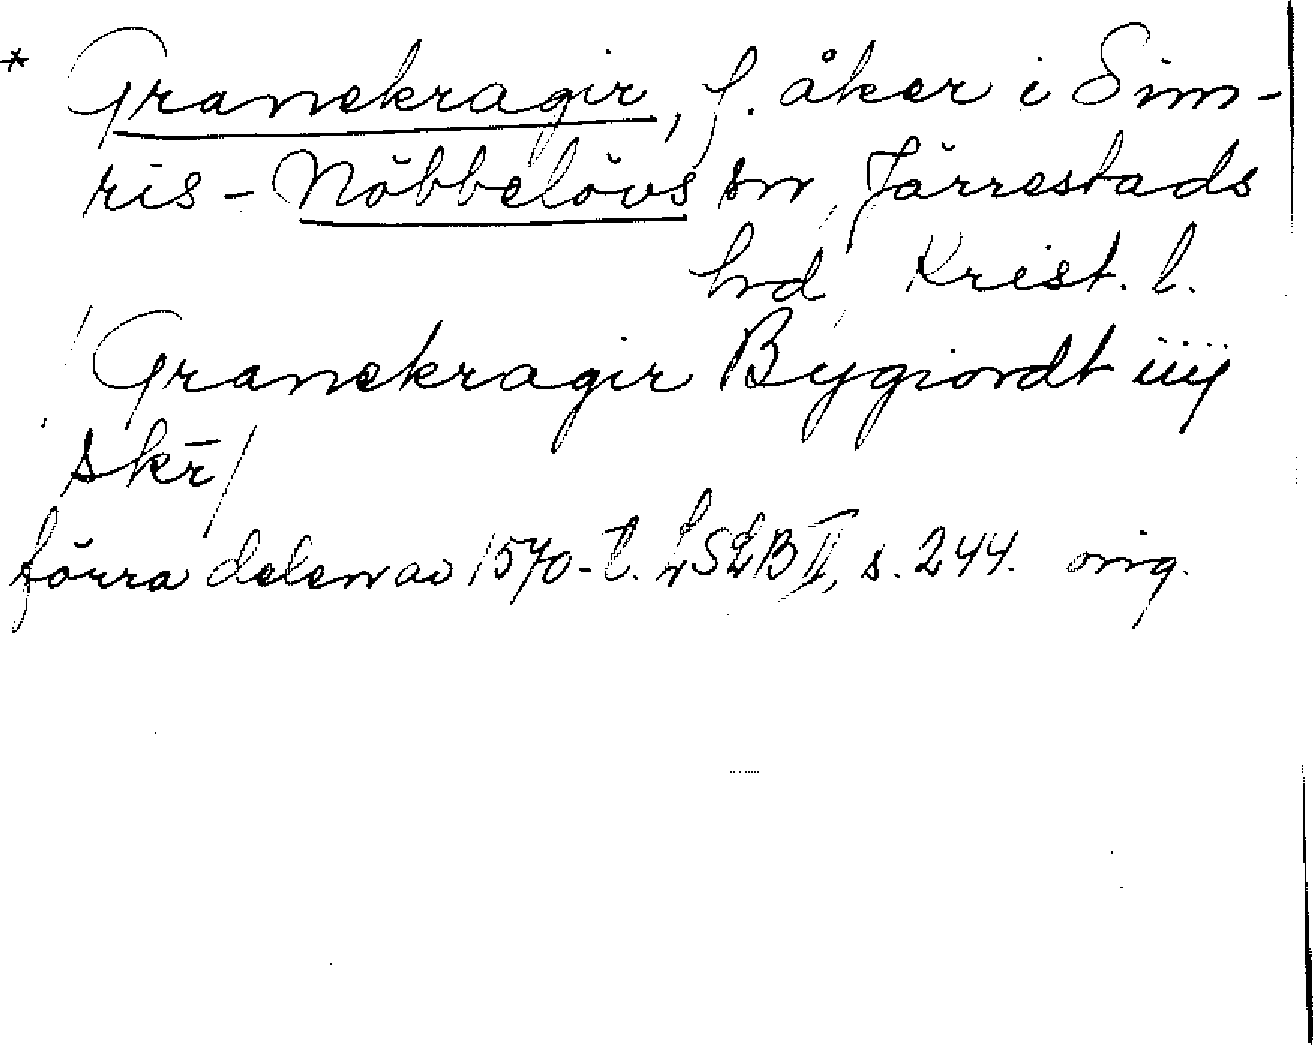 * Granekragir, f. åker i Sim-
ris-Nöbbelövs sn, Järrestads
hd, Krist. l.
/Granekragir Bygiordt iiij
skr̄/
förra delen av 1570-t. LSLB II, s. 244. orig.